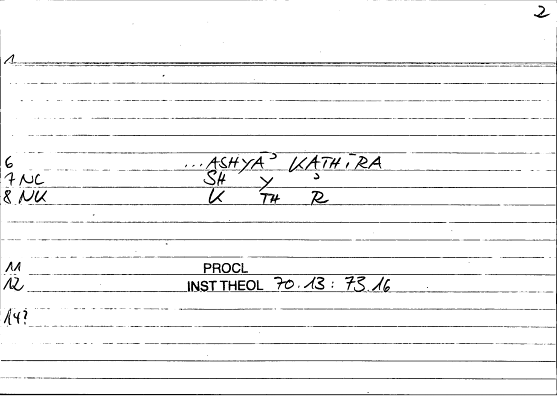 2
1
6 ...ASHYĀʾ KATHĪRA
7 NC SH Y ʾ
8 NK K TH R
11 PROCL
12 INST THEOL 70.13 : 73.16
14?